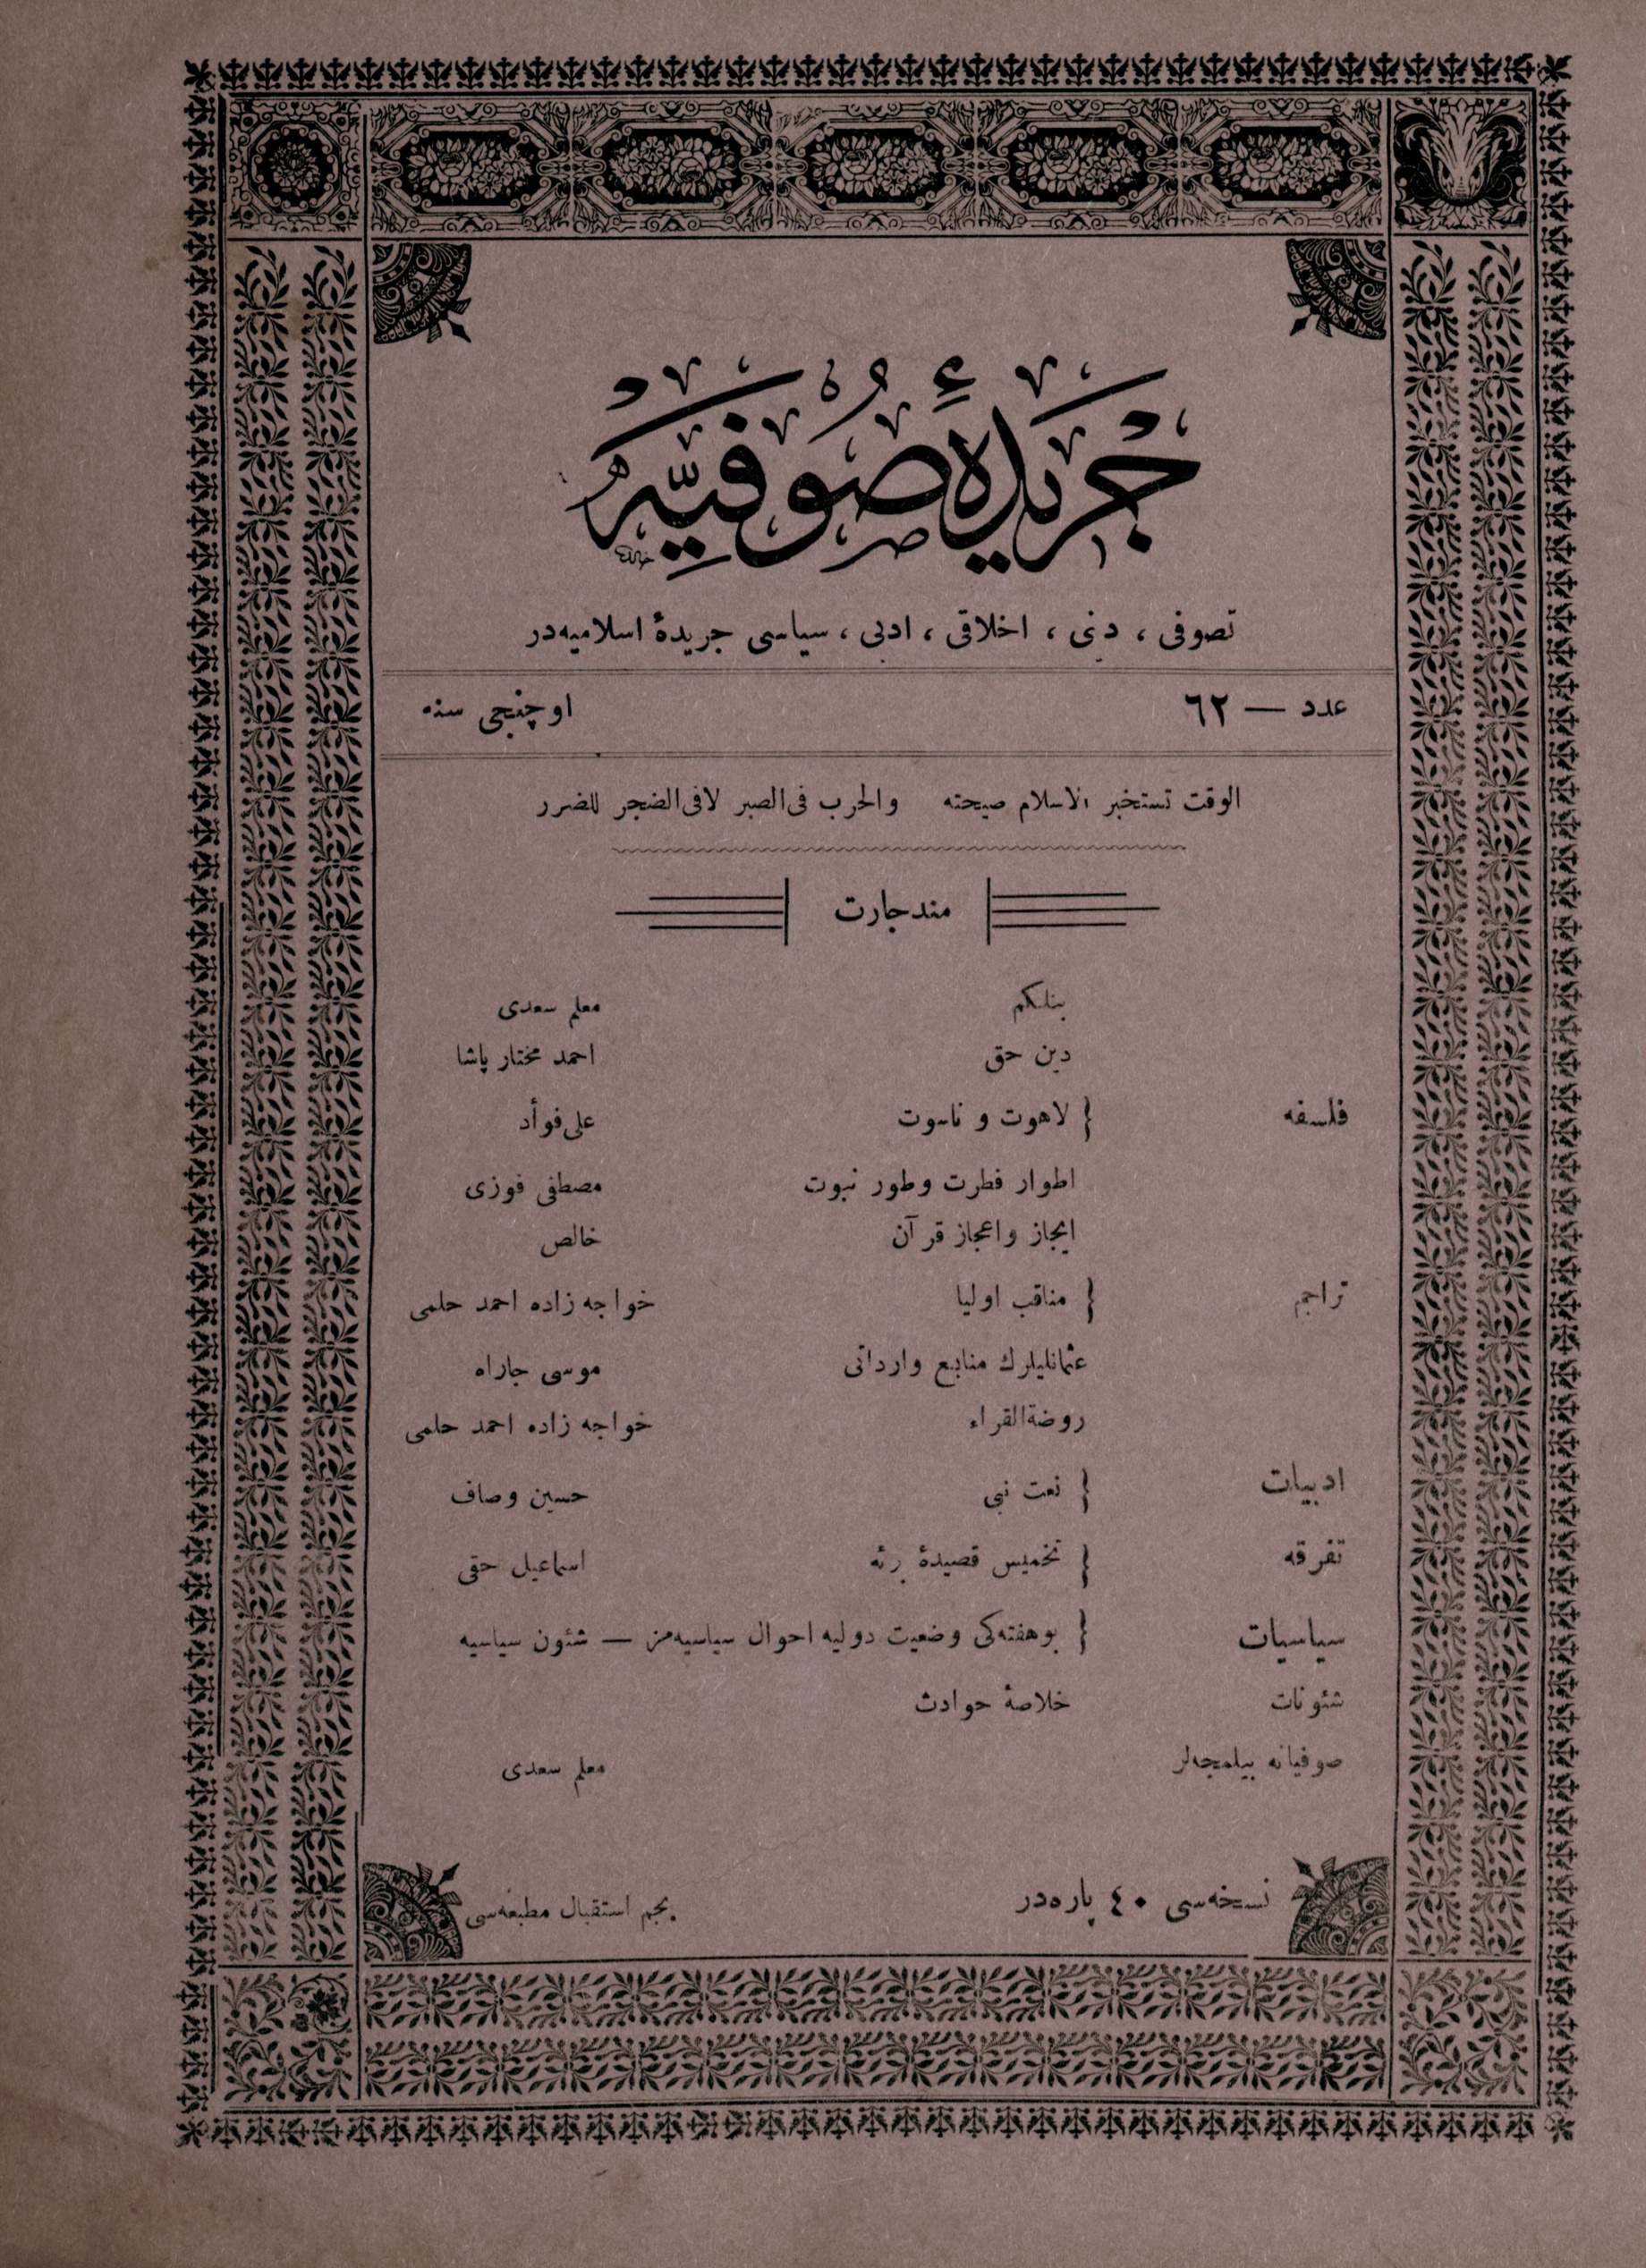 جَرِيدَهٔ صُوفِيَّه
تصوفی ، دینی ، اخلاقی ، ادبی ، سیاسی جریدهٔ اسلامیه‌در
عدد — ٦٢ اوچنجی سنه
الوقت تستخبر الاسلام صیحته والحرب فی‌الصبر لافی‌الضجر للضرر
مندجارت
بنلکم معلم سعدی
دین حق احمد مختار پاشا
فلسفه { لاهوت و ناسوت علی فوأد
اطوار فطرت وطور نبوت مصطفی فوزی
ایجاز واعجاز قرآن خالص
تراجم { مناقب اولیا خواجه زاده احمد حلمی
عثمانلیلرك منابع وارداتی موسی جاراه
روضةالقراء خواجه زاده احمد حلمی
ادبیات { نعت نبی حسین وصاف
تفرقه { تخمیس قصیدهٔ برئه اسماعیل حقی
سیاسیات { بوهفته‌کی وضعیت دولیه احوال سیاسیه‌مز — شئون سیاسیه
شئونات خلاصهٔ حوادث
صوفیانه بیلمجه‌لر معلم سعدی
نسخه‌سی ٤٠ پاره‌در نجم استقبال مطبعه‌سی